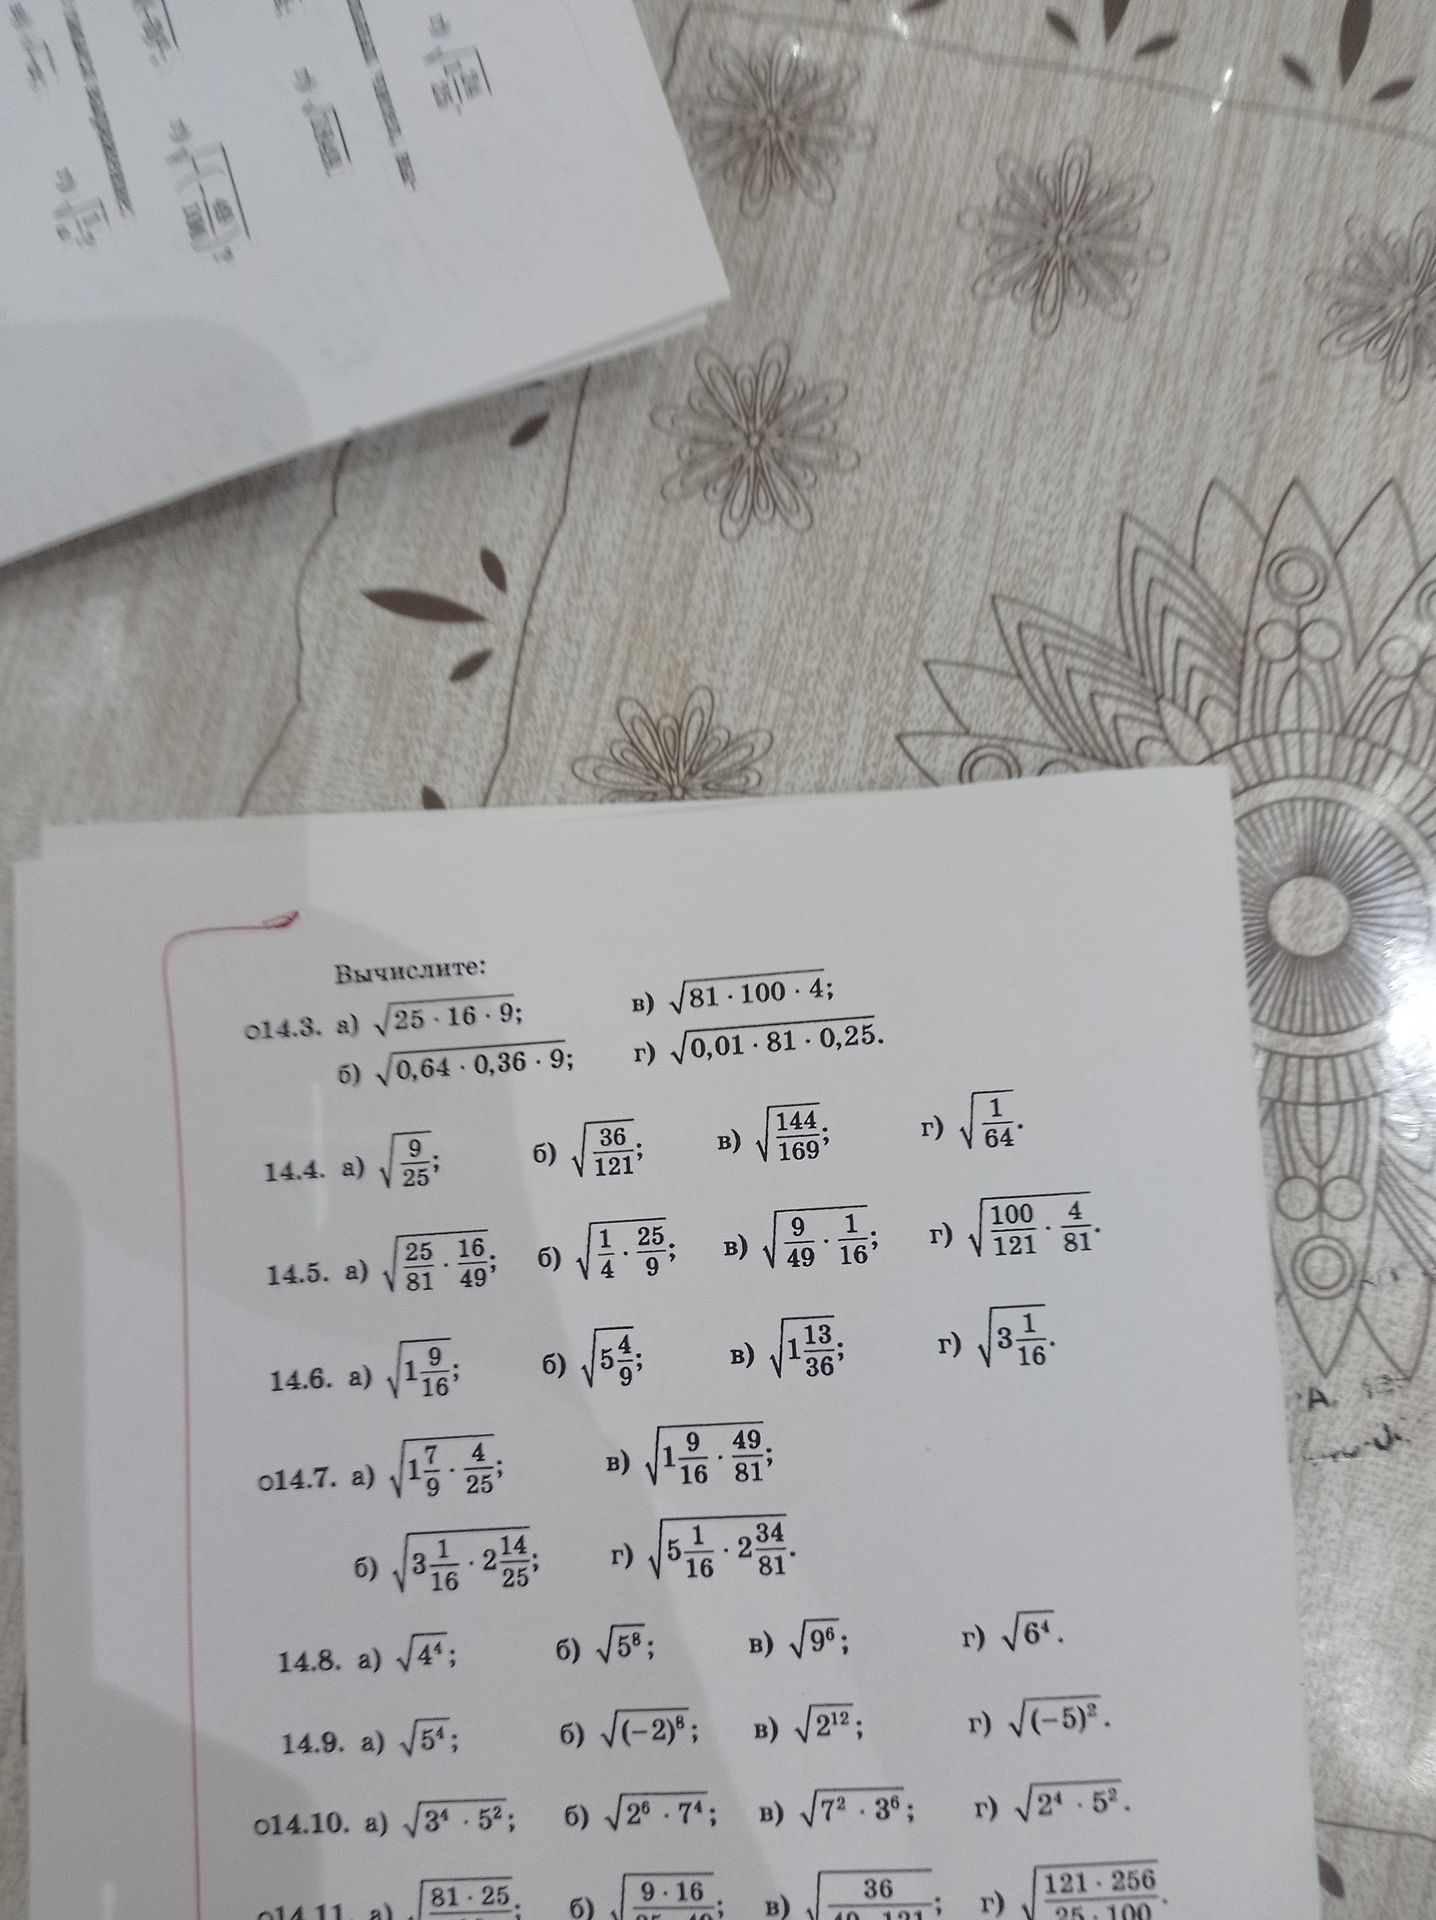 Вычислите:
о14.3. а) √(25 · 16 · 9); в) √(81 · 100 · 4);
б) √(0,64 · 0,36 · 9); г) √(0,01 · 81 · 0,25).
14.4. а) √(9/25); б) √(36/121); в) √(144/169); г) √(1/64).
14.5. а) √(25/81 · 16/49); б) √(1/4 · 25/9); в) √(9/49 · 1/16); г) √(100/121 · 4/81).
14.6. а) √(1 9/16); б) √(5 4/9); в) √(1 13/36); г) √(3 1/16).
о14.7. а) √(1 7/9 · 4/25); в) √(1 9/16 · 49/81);
б) √(3 1/16 · 2 14/25); г) √(5 1/16 · 2 34/81).
14.8. а) √4⁴; б) √5⁸; в) √9⁶; г) √6⁴.
14.9. а) √5⁴; б) √(−2)⁸; в) √2¹²; г) √(−5)².
о14.10. а) √(3⁴ · 5²); б) √(2⁶ · 7⁴); в) √(7² · 3⁶); г) √(2⁴ · 5²).
о14.11. а) √(81 · 25; б) √(9 · 16; в) √(36; г) √(121 · 256/25 · 100).